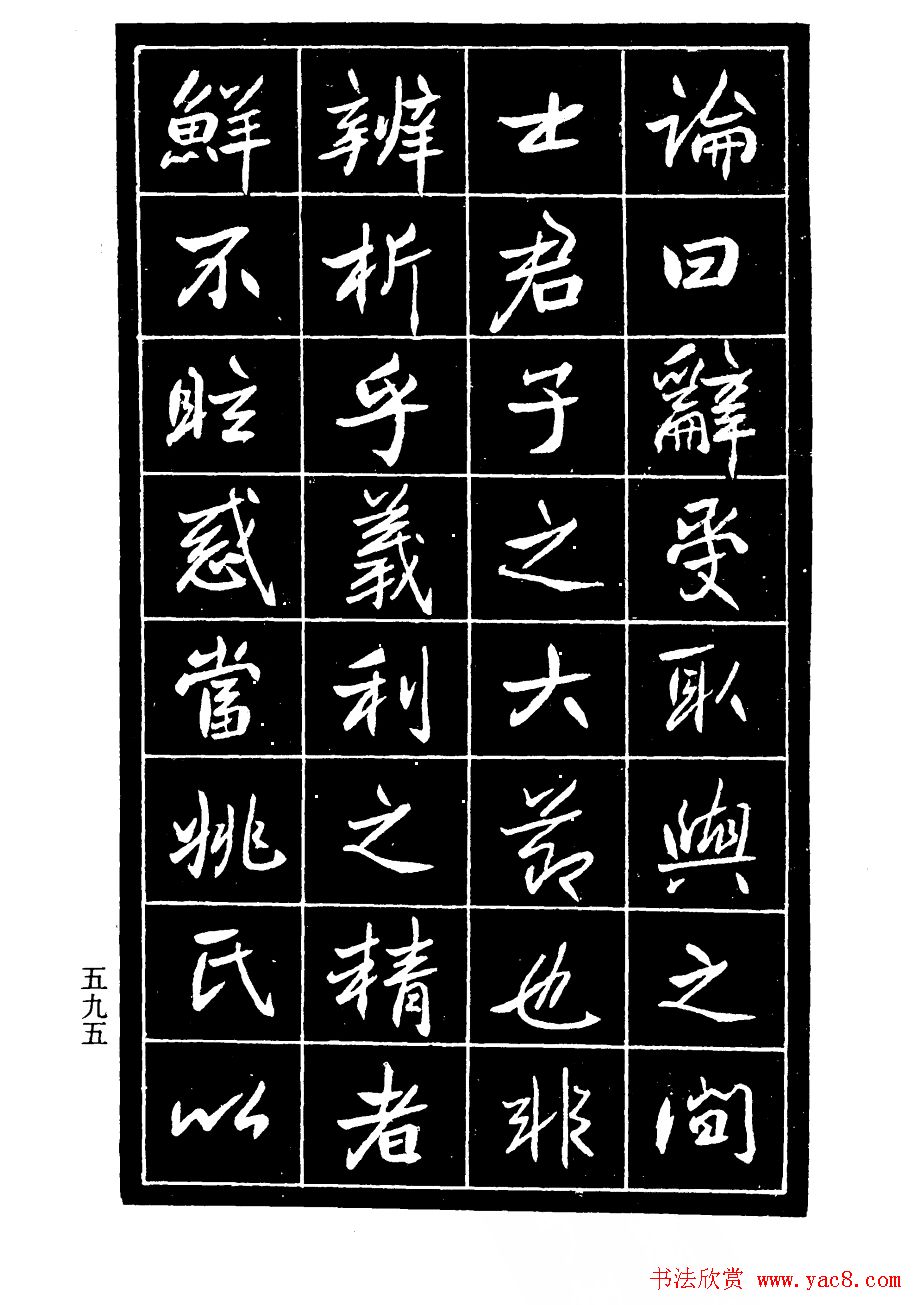 論曰辭受取與之間
士君子之大節也非
辨析乎義利之精者
鮮不眩惑當姚氏以
五九五
书法欣赏 www.yac8.com